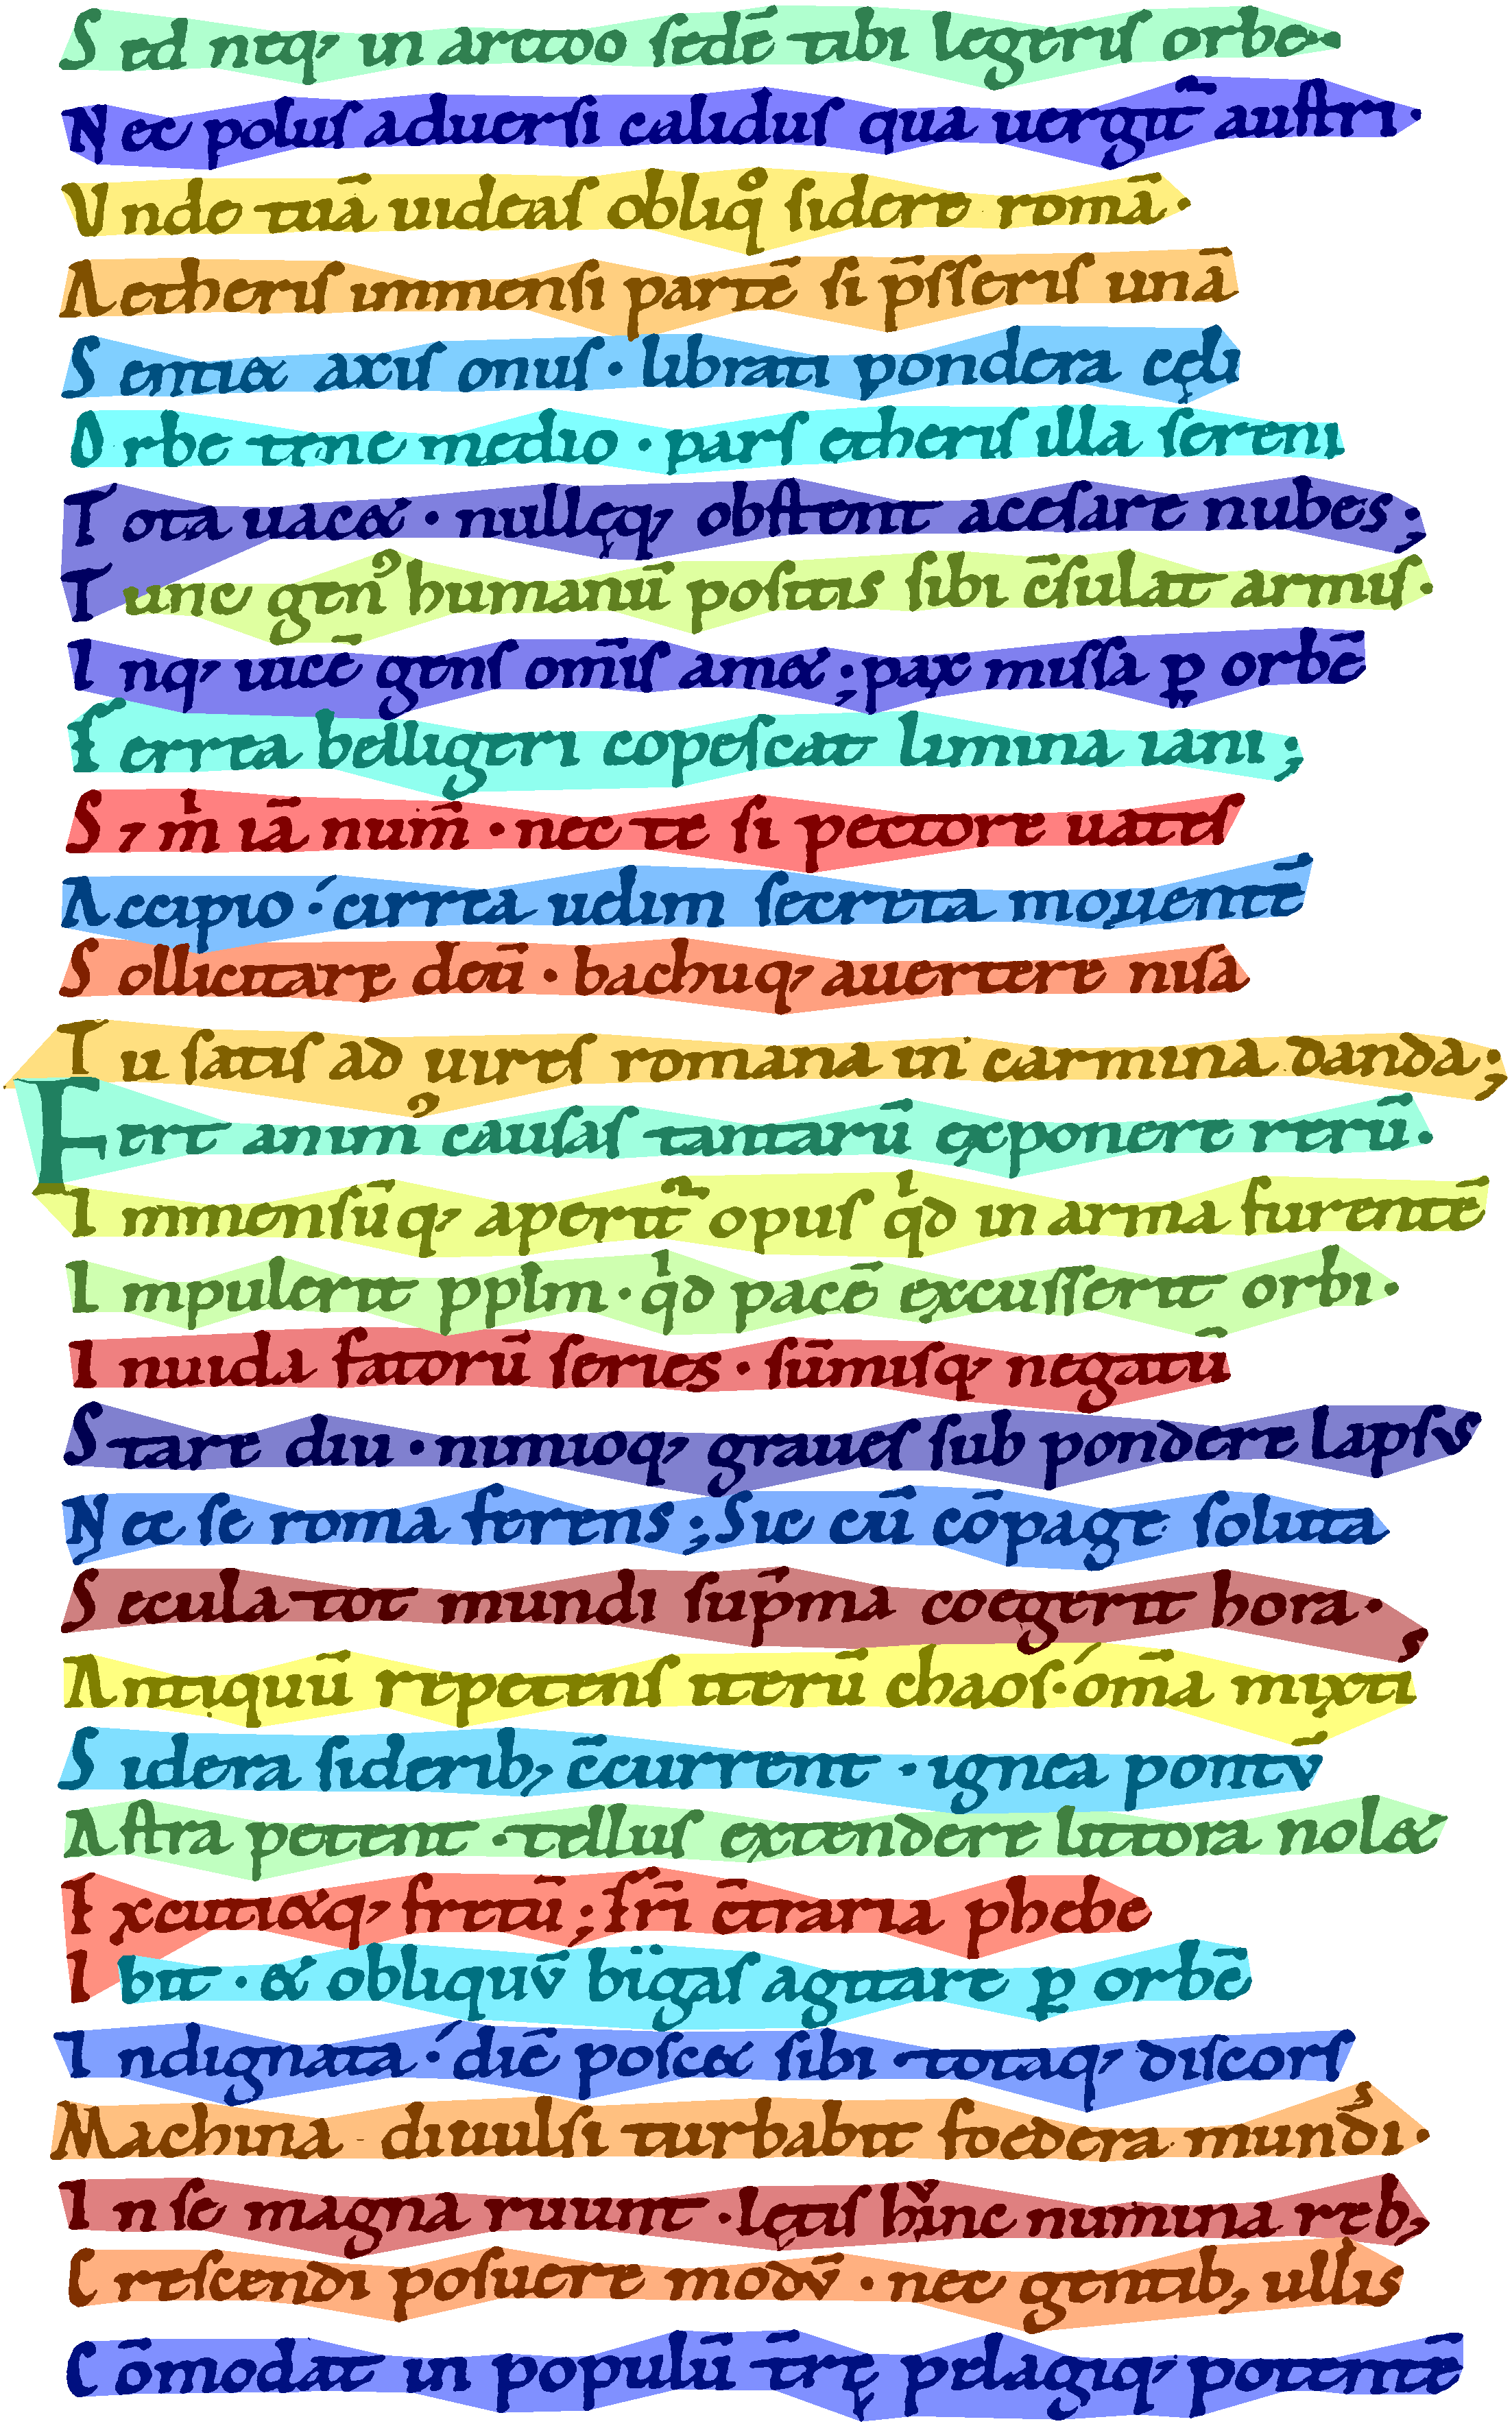 S ed neq, in arctoo sedē tibi legeris orbe·
N ec polus aduersi calidus qua uergit᷑ austri·
V nde tuā uideas obliqͦ sidere romā·
A etheris immensi partē si p̄sseris unā
S enti& axis onus · librati pondera cęli
O rbe tene medio · pars etheris illa sereni
T ota uac& · nullęq, obstent acesare nubes;
T unc gen᾿ humanū positis sibi c̄sulat armis·
I nq, uicē gens om̄is am&; pax missa ꝑ orbē
F errea belligeri copescat limina iani;
S , mͥ iā num̄ · nec te si pectore uates
A ccipio·́ cirrea uelim secreta mouentē
S ollicitare deū · bachuq, auertere nisa
T u satis ad uires romana in carmina danda;
Fert anim᾿ causas tantarū exponere rerū.
I mmensūq, aperit᷑ opus qͥd in arma furentē
I mpulerit ppl̄m · qͥd pacē excusserit orbi·
I nuida fatorū series · sūmisq, negatū
S tare diu · nimioq, graues sub pondere lapsus
N ec se roma ferens; Sic cū cōpage soluta
S ecula tot mundi sup̄ma coegerit hora·,
A ntiquū repetens iterū chaos·́ om̄a mixti
S idera siderib, c̄current · ignea pontv̄
A stra petent · tellus extendere littora nol&
E xcuti&q, fretū; Fr̄i c̄traria phebe
I bit · & obliquv̄ bïgas agitare ꝑ orbē
I ndignata·́ diē posc& sibi · totaq, discors
Machina diuulsi turbabit foedera mundi·
I n se magna ruunt · lętis hinc numina reb,
C rescendi posuere modv̄ · nec gentib, ullis
C ōmodat in populū t̄rę pelagiq, potentē